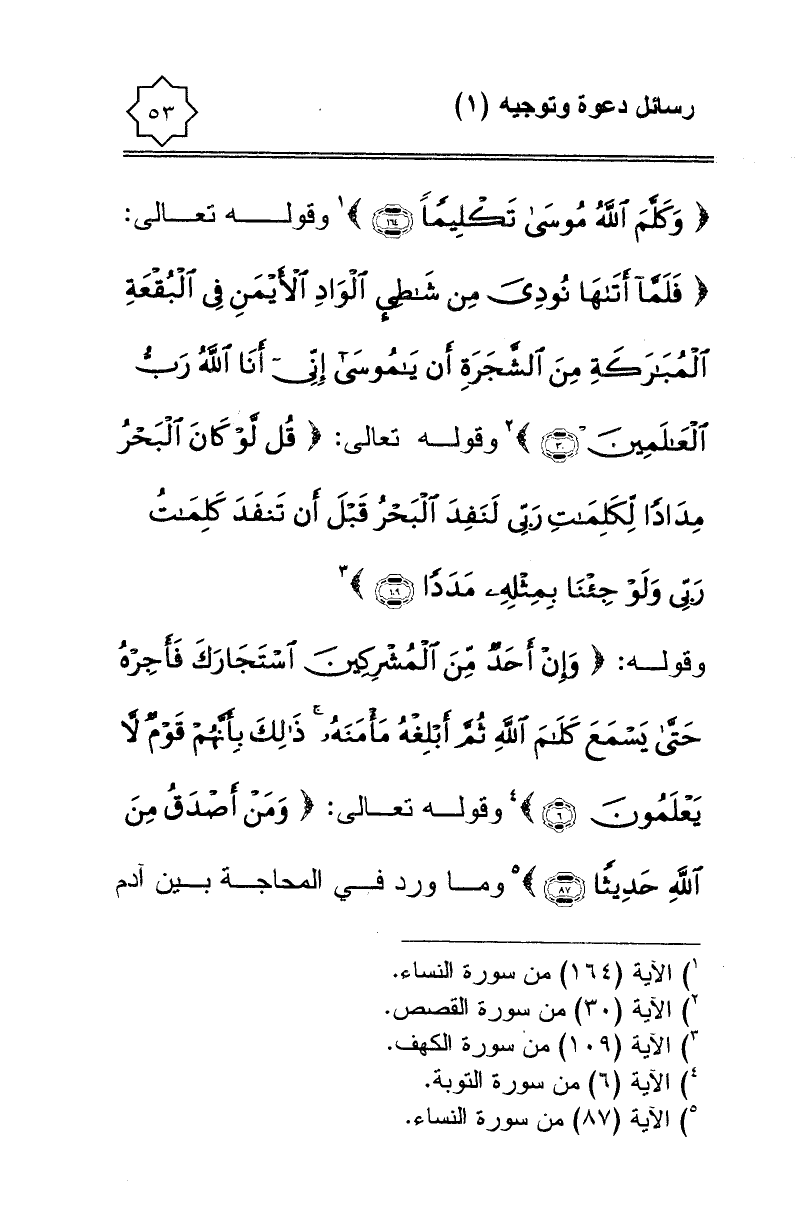 رسائل دعوة وتوجيه (١)
٥٣
﴿ وَكَلَّمَ ٱللَّهُ مُوسَىٰ تَكْلِيمًا ١٦٤ ﴾١ وقولـــــه تعـــالى:
﴿ فَلَمَّآ أَتَىٰهَا نُودِىَ مِن شَٰطِئِ ٱلْوَادِ ٱلْأَيْمَنِ فِى ٱلْبُقْعَةِ
ٱلْمُبَٰرَكَةِ مِنَ ٱلشَّجَرَةِ أَن يَٰمُوسَىٰٓ إِنِّىٓ أَنَا ٱللَّهُ رَبُّ
ٱلْعَٰلَمِينَ ٣٠ ﴾٢ وقولــه تعالى: ﴿ قُل لَّوْ كَانَ ٱلْبَحْرُ
مِدَادًا لِّكَلِمَٰتِ رَبِّى لَنَفِدَ ٱلْبَحْرُ قَبْلَ أَن تَنفَدَ كَلِمَٰتُ
رَبِّى وَلَوْ جِئْنَا بِمِثْلِهِۦ مَدَدًا ١٠٩ ﴾٣
وقولــه: ﴿ وَإِنْ أَحَدٌ مِّنَ ٱلْمُشْرِكِينَ ٱسْتَجَارَكَ فَأَجِرْهُ
حَتَّىٰ يَسْمَعَ كَلَٰمَ ٱللَّهِ ثُمَّ أَبْلِغْهُ مَأْمَنَهُۥ ۚ ذَٰلِكَ بِأَنَّهُمْ قَوْمٌ لَّا
يَعْلَمُونَ ٦ ﴾٤ وقولــه تعــالى: ﴿ وَمَنْ أَصْدَقُ مِنَ
ٱللَّهِ حَدِيثًا ٨٧ ﴾٥ ومـا ورد فـي المحاجـة بـين آدم
١) الآية (١٦٤) من سورة النساء.
٢) الآية (٣٠) من سورة القصص.
٣) الآية (١٠٩) من سورة الكهف.
٤) الآية (٦) من سورة التوبة.
٥) الآية (٨٧) من سورة النساء.